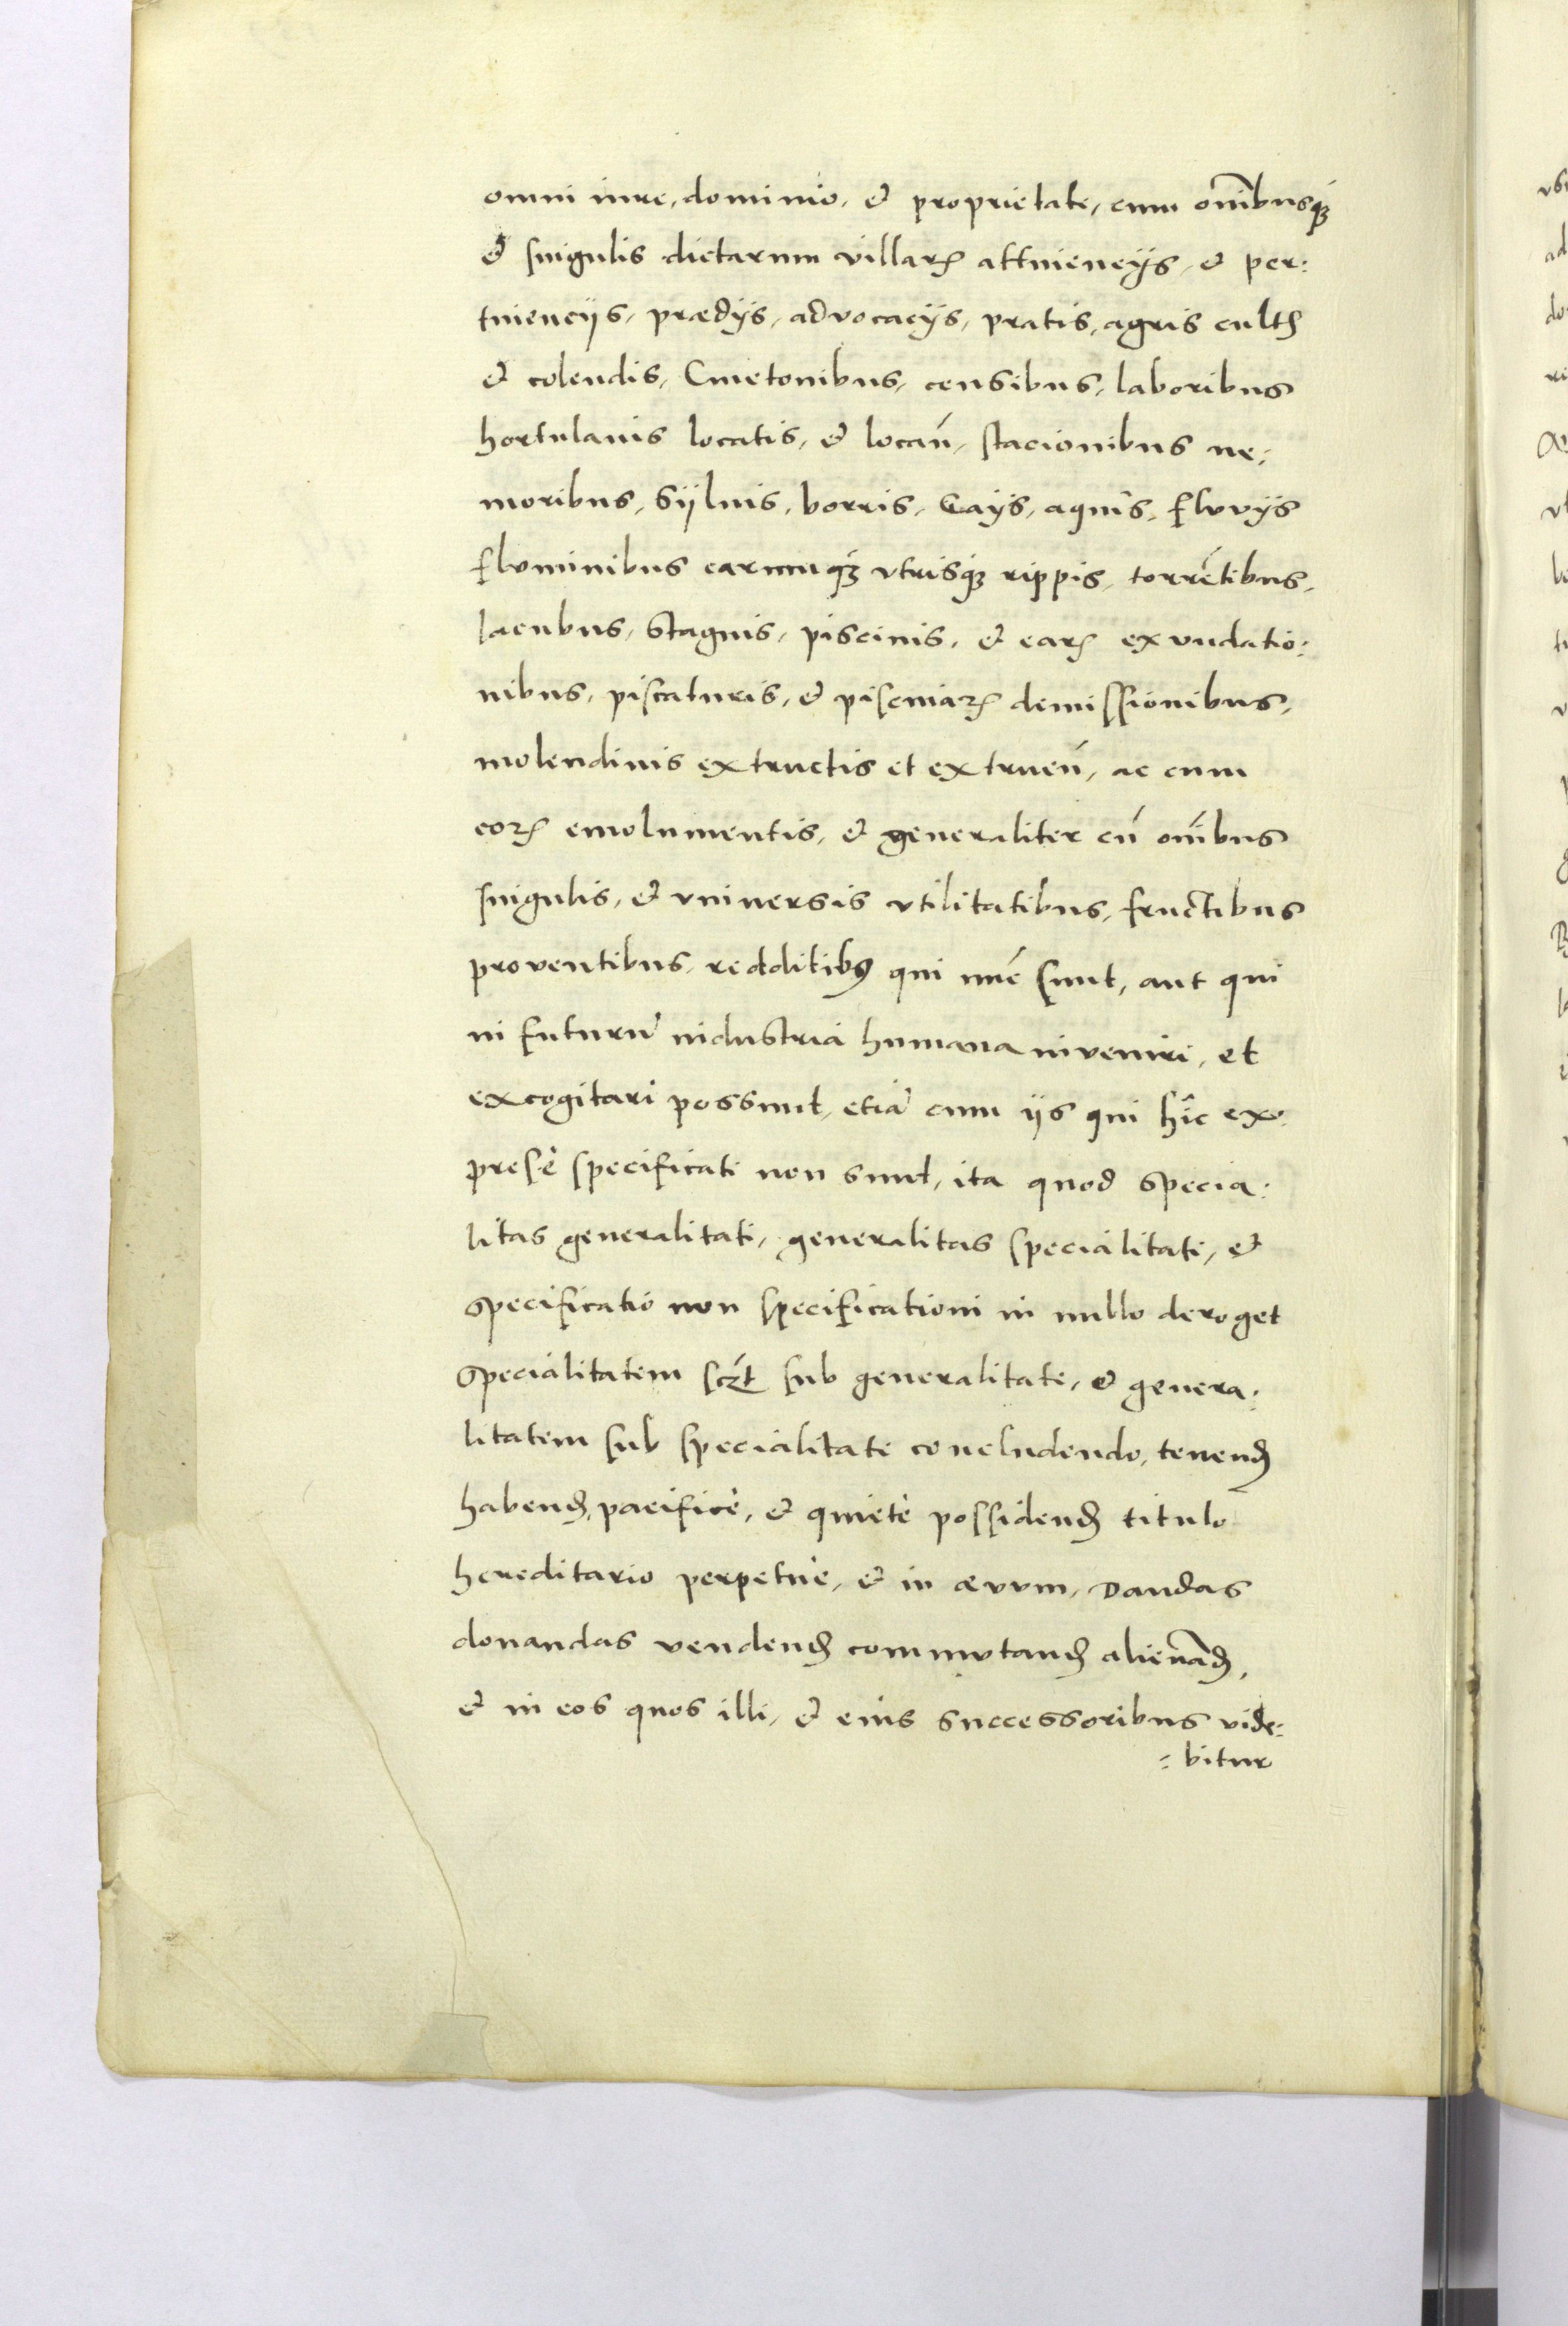 omni iure, dominio, et proprietate, cum om̃ibusq́ꝫ
et singulis dictarum villarꝝ attinencijs, et per:
tinencijs, prædijs, advocacijs, pratis, agris cultꝭ
et colendis, Cmetonibus, censibus, laboribus
hortulanis locatis, et locań, stacionibus ne:
moribus, Syluis, borris, Gays, aquis, fluvijs
fluminibus earumq́ꝫ vtrisq́ꝫ rippis, torrẽtibus,
lacubus, Stagnis, piscinis, et earꝝ exundatio:
nibus, piscaturis, et pisciniarꝝ demissionibus,
molendinis extructis et extrueń, ac cum
eorꝝ emolumentis, et generaliter cũ om̃ibus
singulis, et vniversis vtilitatibus, fructibus
proventibus, redditibꝯ qui nũc sunt, aut qui
in futurũ industria humana inveniri, et
excogitari possunt, etiã cum ijs qui hîc ex:
presè specificati non sunt, ita quod specia:
litas generalitati, generalitas specialitati, et
specificatio non specificationi in nullo deroget
specialitatem scꝫt sub generalitate, et genera:
litatem sub specialitate concludendo, tenenḍ
habenḍ, pacificè, et quietè possidenḍ titulo
hereditario perpetuè, et in ævum, Dandas
donandas vendenḍ commutanḍ alienãḍ,
et in eos quos illi, et eius successoribus vide:
:bitur